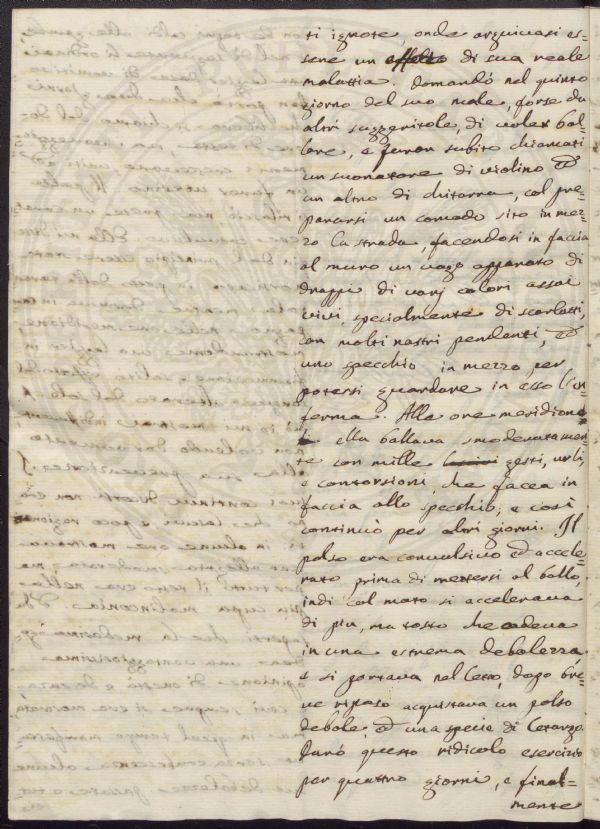 ti ignote, onde arguivasi es-
sere un effetto di sua reale
malattia. Domandò nel quinto
giorno del suo male, forse da
altri suggeritole, di voler bal-
lare, e furon subito chiamati
un suonatore di violino ed
un altro di chitarra, col pre-
pararsi un comodo sito in mez-
zo la strada, facendosi in faccia
al muro un vago apparato di
drappi di varj colori assai
vivi, specialmente di scarlatti,
con molti nastri pendenti, ed
uno specchio in mezzo per
potersi guardare in esso l'in-
ferma. Alla ore meridiona
ella ballava smoderatamen-
te con mille gesti, urli,
e contorsioni, che facea in
faccia allo specchio, e così
continuò per altri giorni. Il
polso era convulsivo ed accele-
rato prima di mettersi al ballo,
indi col moto si accelerava
di piu, ma tosto che cadeva
in una estrema debolezza,
e si portava nel letto, dopo bre-
ve riposo acquistava un polso
debole, ed una specie di letargo.
Durò questo ridicolo esercizio
per quattro giorni, e final-
mente